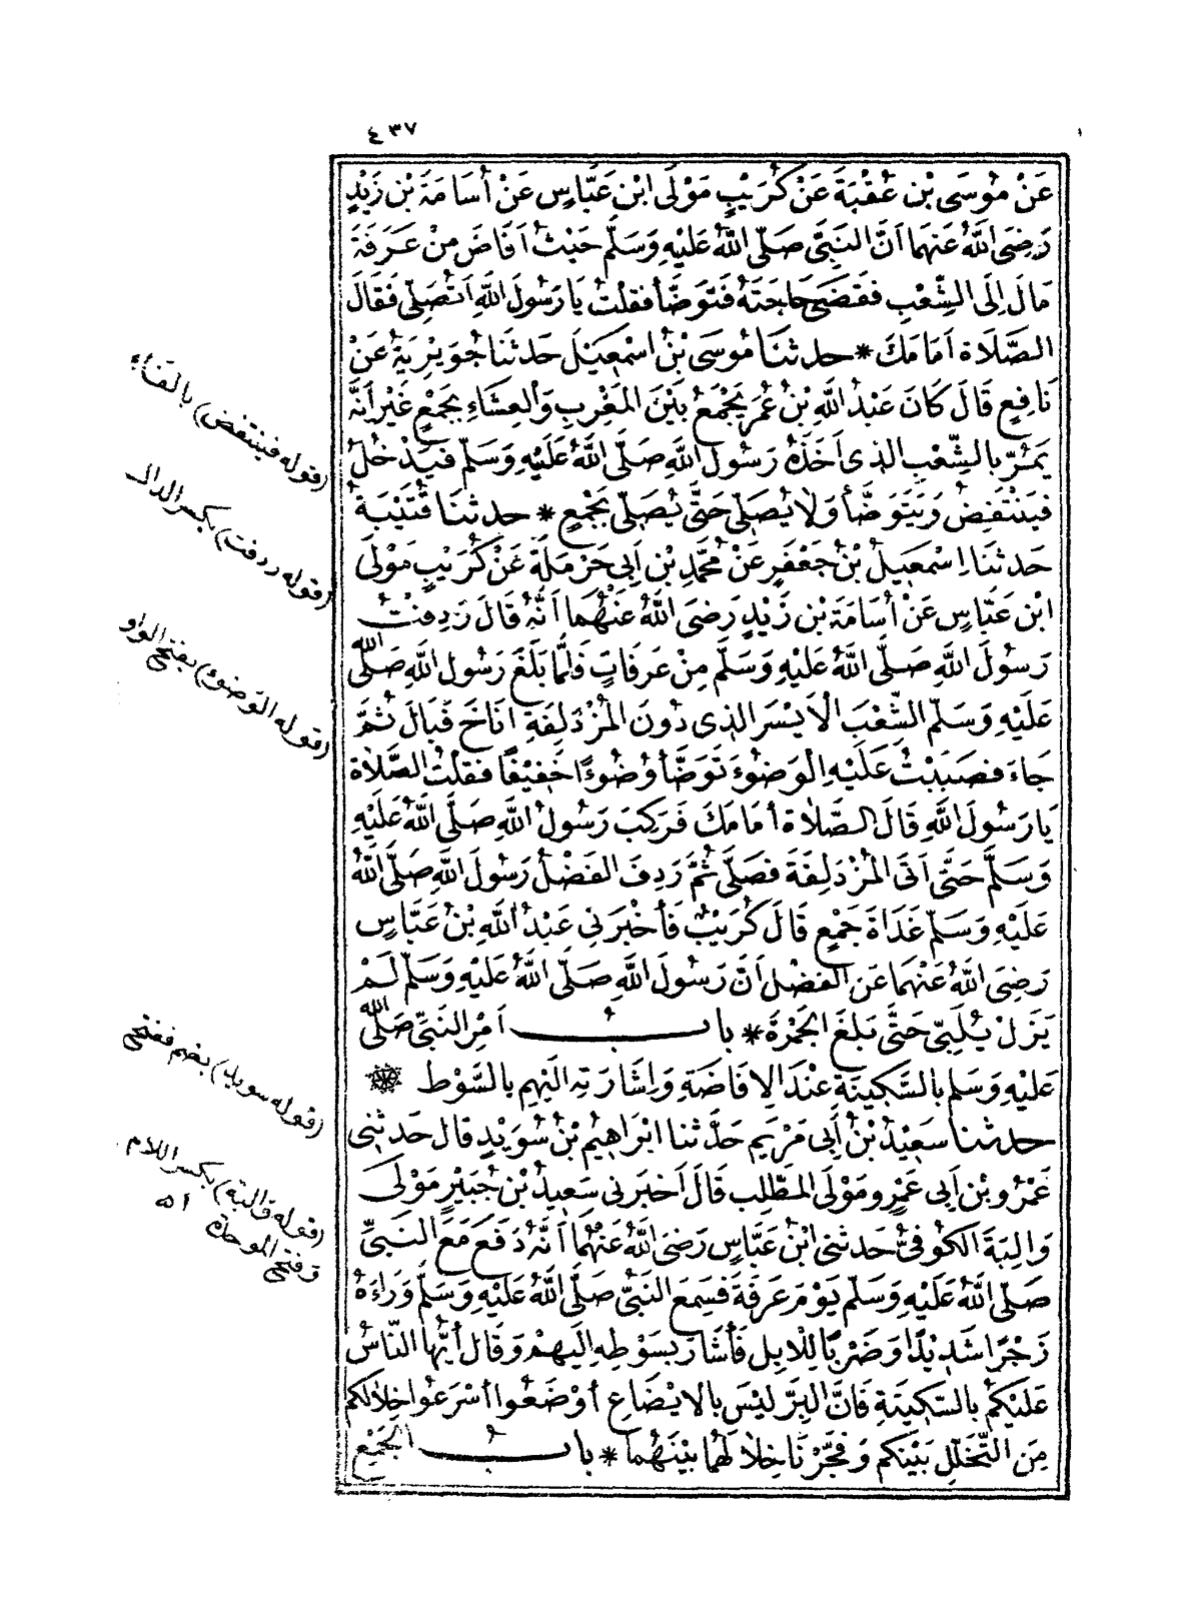 ٤٣٧
عَنْ مُوسَى بْنِ عُقْبَةَ عَنْ كُرَيْبٍ مَوْلَى ابْنِ عَبَّاسٍ عَنْ أُسَامَةَ بْنِ زَيْدٍ
رَضِيَ اللهُ عَنْهُمَا أَنَّ النَّبِيَّ صَلَّى اللهُ عَلَيْهِ وَسَلَّمَ حَيْثُ أَفَاضَ مِنْ عَرَفَةَ
مَالَ إِلَى الشِّعْبِ فَقَضَى حَاجَتَهُ فَتَوَضَّأَ فَقُلْتُ يَا رَسُولَ اللهِ أَتُصَلِّي فَقَالَ
الصَّلَاةُ أَمَامَكَ * حدثنا مُوسَى بْنُ اسْمَعِيلَ حَدثنَا جُوَيْرِيَةُ عَنْ
نَافِعٍ قَالَ كَانَ عَبْدُ اللهِ بْنُ عُمَرَ يَجْمَعُ بَيْنَ المَغْرِبِ وَالعِشَاءِ بِجَمْعٍ غَيْرَ أَنَّهُ
يَمُرُّ بِالشِّعْبِ الذي أَخَذَهُ رَسُولُ اللهِ صَلَّى اللهُ عَلَيْهِ وَسَلَّمَ فَيَدْخُلُ
فَيَنْتَفِضُ وَيَتَوَضَّأُ وَلَا يُصَلِّي حَتَّى يُصَلِّيَ بِجَمْعٍ * حدثنَا قُتَيْبَةُ
حَدثنَا اسْمَعِيلُ بْنُ جَعْفَرٍ عَنْ مُحَمَّدِ بْنِ أَبِي حَرْمَلَةَ عَنْ كُرَيْبٍ مَوْلَى
ابْنِ عَبَّاسٍ عَنْ أُسَامَةَ بْنِ زَيْدٍ رَضِيَ اللهُ عَنْهُمَا أَنَّهُ قَالَ رَدِفْتُ
رَسُولَ اللهِ صَلَّى اللهُ عَلَيْهِ وَسَلَّمَ مِنْ عَرَفَاتٍ فَلَمَّا بَلَغَ رَسُولُ اللهِ صَلَّى اللهُ
عَلَيْهِ وَسَلَّمَ الشِّعْبَ الأَيْسَرَ الذي دُونَ المُزْدَلِفَةِ أَنَاخَ فَبَالَ ثُمَّ
جَاءَ فَصَبَبْتُ عَلَيْهِ الوَضُوءَ تَوَضَّأَ وُضُوءًا خَفِيفًا فَقُلْتُ الصَّلَاةُ
يَا رَسُولَ اللهِ قَالَ الصَّلَاةُ أَمَامَكَ فَرَكِبَ رَسُولُ اللهِ صَلَّى اللهُ عَلَيْهِ
وَسَلَّمَ حَتَّى أَتَى المُزْدَلِفَةَ فَصَلَّى ثُمَّ رَدِفَ الفَضْلُ رَسُولَ اللهِ صَلَّى اللهُ
عَلَيْهِ وَسَلَّمَ غَدَاةَ جَمْعٍ قَالَ كُرَيْبٌ فَأَخْبَرَنِي عَبْدُ اللهِ بْنُ عَبَّاسٍ
رَضِيَ اللهُ عَنْهُمَا عَنِ الفَضْلِ أَنَّ رَسُولَ اللهِ صَلَّى اللهُ عَلَيْهِ وَسَلَّمَ لَمْ
يَزَلْ يُلَبِّي حَتَّى بَلَغَ الجَمْرَةَ * بابُ أَمْرِ النَّبِيِّ صَلَّى اللهُ
عَلَيْهِ وَسَلَّمَ بِالسَّكِينَةِ عِنْدَ الإِفَاضَةِ وَإِشَارَتِهِ إِلَيْهِمْ بِالسَّوْطِ
حدثنا سَعِيدُ بْنُ أَبِي مَرْيَمَ حَدَّثنا ابْرَاهِيمُ بْنُ سُوَيْدٍ قال حَدثنِي
عَمْرُو بْنُ أَبِي عَمْرٍو مَوْلَى المُطَّلِبِ قَالَ أَخْبَرَنِي سَعِيدُ بْنُ جُبَيْرٍ مَوْلَى
وَالِبَةَ الكُوفِيُّ حَدثني ابْنُ عَبَّاسٍ رَضِيَ اللهُ عَنْهُمَا أَنَّهُ دَفَعَ مَعَ النَّبِيِّ
صَلَّى اللهُ عَلَيْهِ وَسَلَّمَ يَوْمَ عَرَفَةَ فَسَمِعَ النَّبِيُّ صَلَّى اللهُ عَلَيْهِ وَسَلَّمَ وَرَاءَهُ
زَجْرًا شَدِيدًا وَضَرْبًا لِلْإِبِلِ فَأَشَارَ بِسَوْطِهِ إِلَيْهِمْ وَقَالَ أَيُّهَا النَّاسُ
عَلَيْكُمْ بِالسَّكِينَةِ فَإِنَّ البِرَّ لَيْسَ بِالإِيْضَاعِ أَوْضَعُوا أَسْرَعُوا خِلَالَكُمْ
مِنَ التَّخَلُّلِ بَيْنَكُمْ وَفَجَّرْنَا خِلَالَهُمَا بَيْنَهُمَا * بابُ الجَمْعِ
(قوله فينتفض) بالفاء
(قوله ردفت) بكسر الدال
(قوله الوضوء) بفتح الواو
(قوله سويد) بضم ففتح
(قوله والبة) بكسر اللام
وفتح الموحدة اه